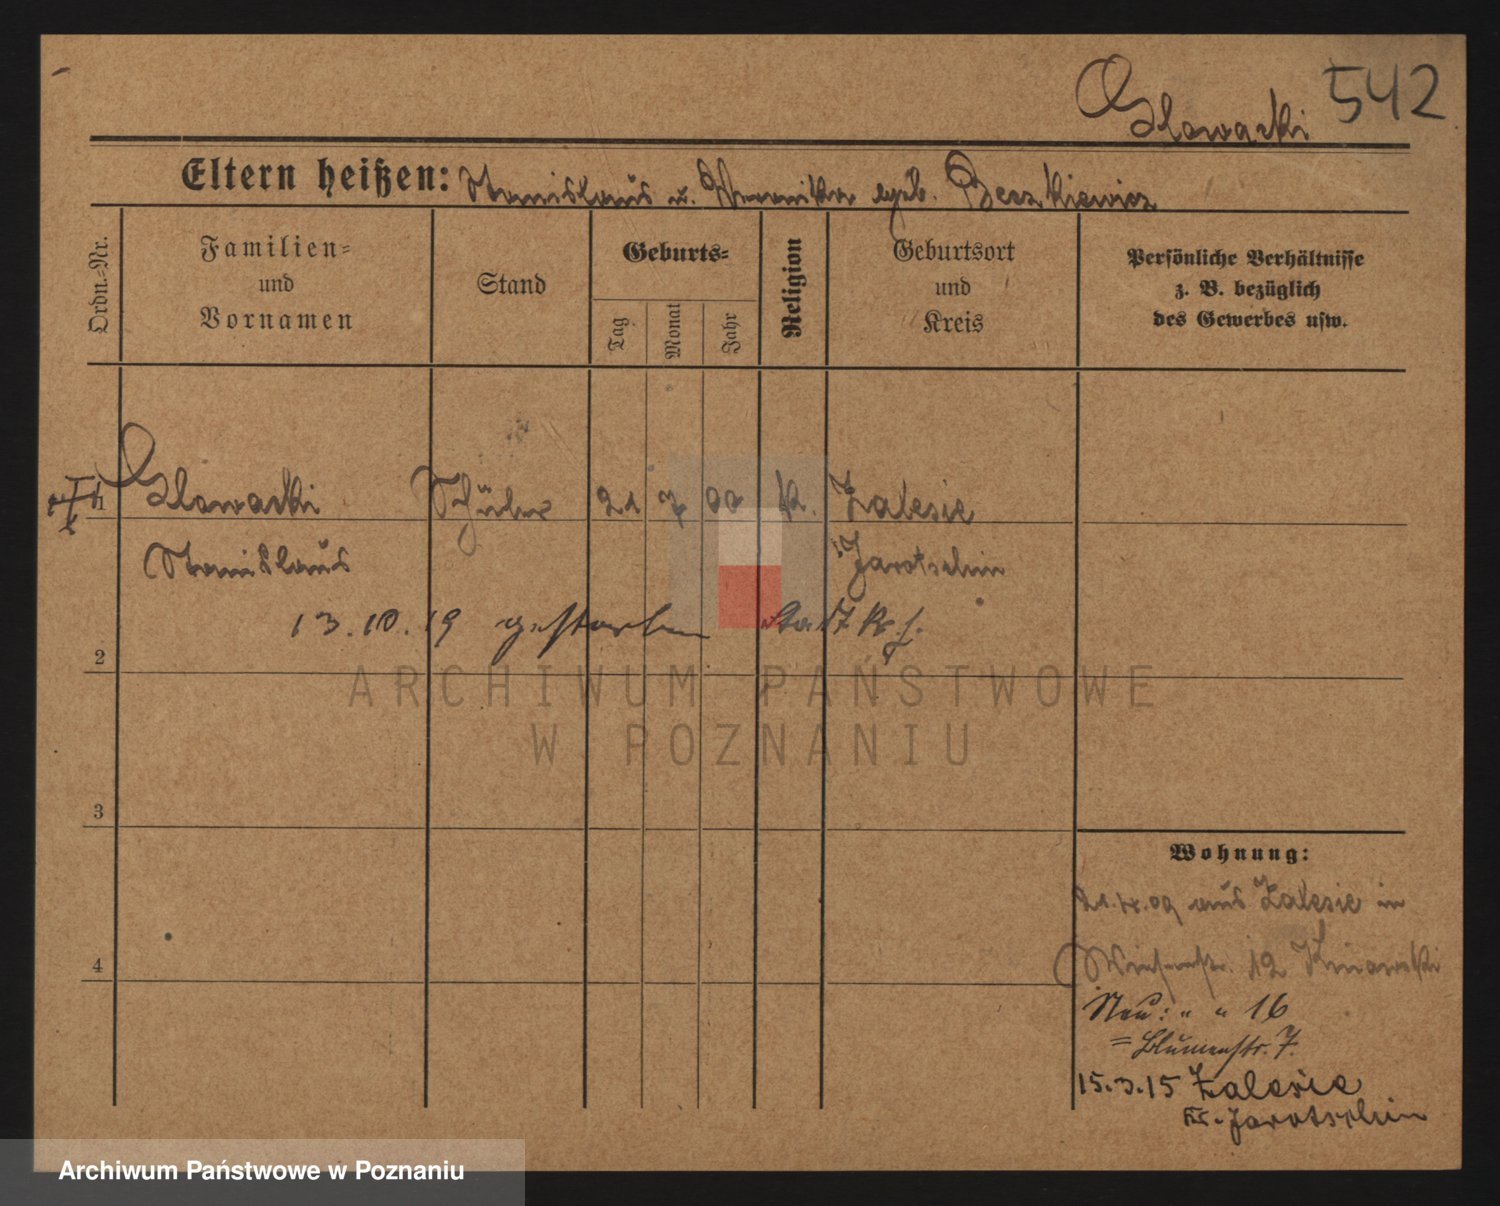 Slowacki 542
Eltern heißen: Stanislaus u. Veronika geb. Beszkiewicz
Ordn.=Nr.
Familien=
und
Vornamen
Stand
Geburts=
Tag
Monat
Jahr
Religion
Geburtsort
und
Kreis
Persönliche Verhältnisse
z. B. bezüglich
des Gewerbes usw.
1 Slowacki Schüler 21 7 00 k. Zalesie
Stanislaus Jarotschin
13.10.19 gestorben
2
ARCHIWUM PAŃSTWOWE
W POZNANIU
3
Wohnung:
09 aus Zalesie in
12
4
Neu: " " 16
= Blumenstr. 7.
15.3.15 Zalesie
Kr. Jarotschin
Archiwum Państwowe w Poznaniu